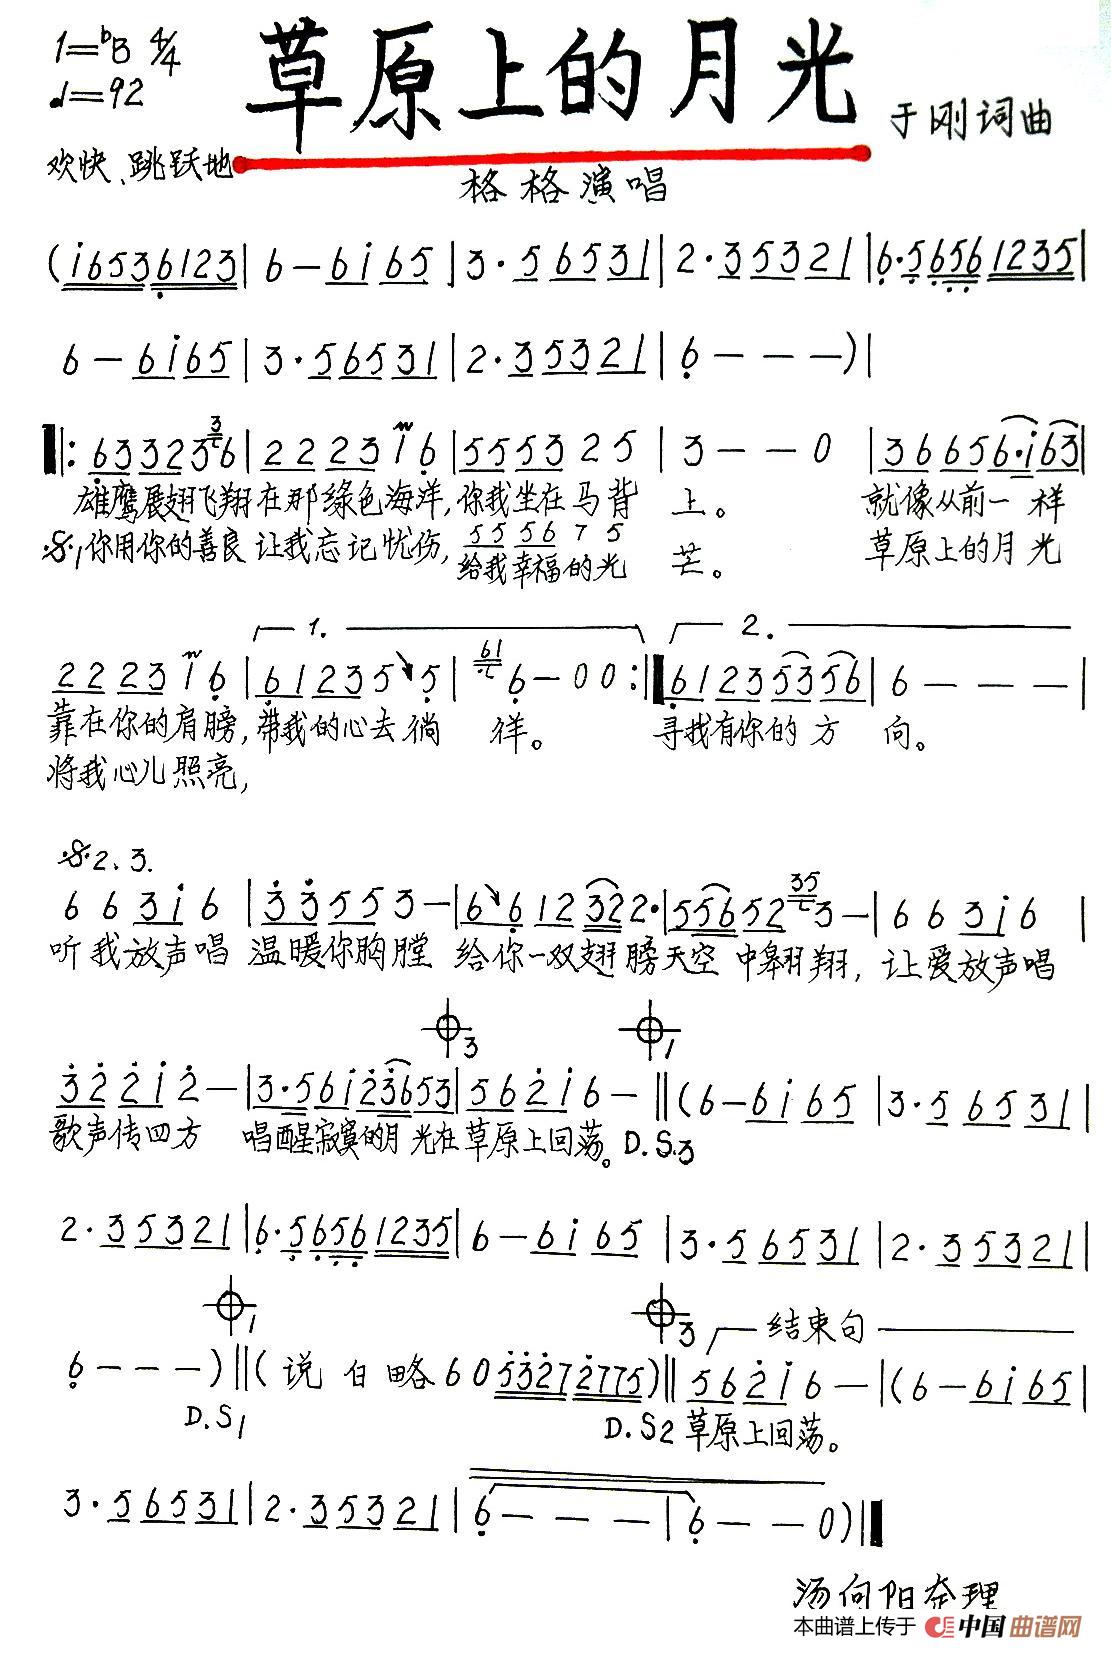 1=♭B 4/4
草原上的月光
♩=92
于刚词曲
欢快、跳跃地
格格演唱
(i6536123|6-6i65|3·56531|2·35321|6·56561235|
6-6i65|3·56531|2·35321|6---)|
‖:6332336|2223i6|5553 25|3--0|36656·i63|
雄鹰展翅飞翔在那绿色海洋,你我坐在马背上。就像从前一样
𝄋1你用你的善良让我忘记忧伤,
55 56 7 5
给我幸福的光芒。草原上的月光
1. 2.
2223i6|612355|61 6-00:‖6123535 6|6---|
靠在你的肩膀,带我的心去徜徉。寻找有你的方向。
将我心儿照亮,
𝄋2、3.
663i6|33553-|66123222·|55652 35 3-|663i6|
听我放声唱温暖你胸膛给你一双翅膀天空中翱翔,让爱放声唱
𝄌3 𝄌1
322i2-|3·56i23653|562i6-‖(6-6i65|3·56531|
歌声传四方唱醒寂寞的月光在草原上回荡。D.S.3
2·35321|6·56561235|6-6i65|3·56531|2·35321|
𝄌1 𝄌3 结束句
6---)‖(说白略6053272775)‖562i6-|(6-6i65|
D.S1 D.S2草原上回荡。
3·56531|2·35321|6---|6--0)‖
汤向阳奉理
本曲谱上传于 中国曲谱网